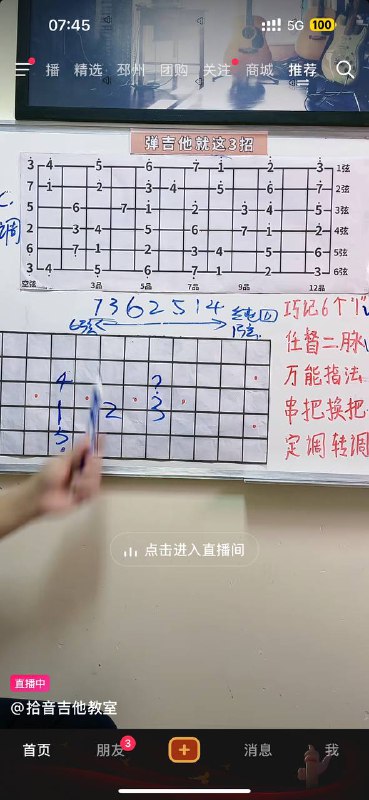 07:45
5G 100
播 精选 邳州 团购 关注 商城 推荐
弹吉他就这3招
3 4 5 6 7 1 2 3 1弦
7 1 2 3 4 5 6 7 2弦
5 6 7 1 2 3 4 5 3弦
4弦
6 7 1 2 3 4 5 6 5弦
3 4 5 6 7 1 2 3 6弦
空弦 3品 5品 7品 9品 12品
C.
调
7 3 6 2 5 1 4
6弦
1弦
巧记6个"1"
任督二脉
万能指法
串把换把
定调转调
4 7
1 2 3
5
点击进入直播间
直播中
@拾音吉他教室
首页 朋友 3 消息 我